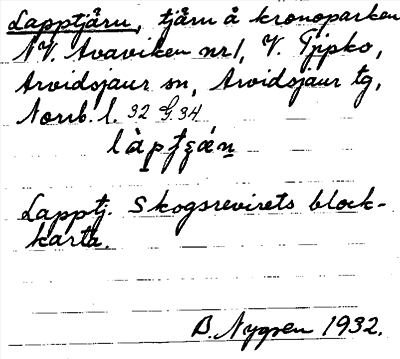 Lapptjärn, tjärn å kronoparken
NV. Avaviken nr 1, V.
Arvidsjaur sn, Arvidsjaur tg,
Norrb. l. 32 G. 34
Lapptj. Skogsrevirets block-
karta.
B. Nygren 1932.